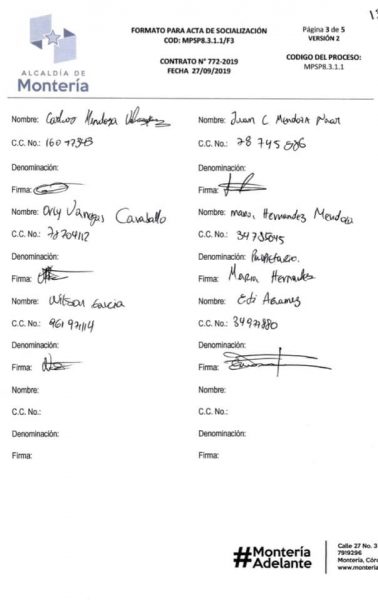 ALCALDÍA DE
Montería
FORMATO PARA ACTA DE SOCIALIZACIÓN
COD: MPSP8.3.1.1/F3
CONTRATO N° 772-2019
FECHA 27/09/2019
Página 3 de 5
VERSIÓN 2
CODIGO DEL PROCESO:
MPSP8.3.1.1
Nombre: Carlos Mendoza
C.C. No.:
Denominación:
Firma:
Nombre: Juan C Mendoza
C.C. No.: 78745586
Denominación:
Firma:
Nombre: Orly Vanegas Caraballo
C.C. No.: 78704112
Denominación:
Firma:
Nombre: Maria Hernandez Mendoza
C.C. No.:
Denominación: Propietario.
Firma: Maria Hernandez
Nombre: Wilson Garcia
C.C. No.:
Denominación:
Firma:
Nombre: Edi
C.C. No.:
Denominación:
Firma:
Nombre:
C.C. No.:
Denominación:
Firma:
Nombre:
C.C. No.:
Denominación:
Firma:
#Montería
Adelante
Calle 27 No. 3
7919296
Montería, Córd
www.monteria